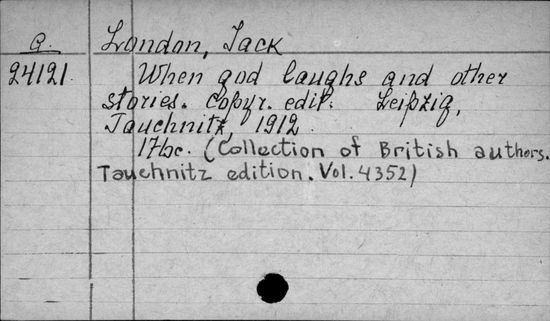 a. London, Jack
24121. When god laughs and other
stories. Copyr. edit. Leipzig,
Tauchnitz, 1912.
(Collection of British authors.
Tauchnitz edition. Vol. 4352)